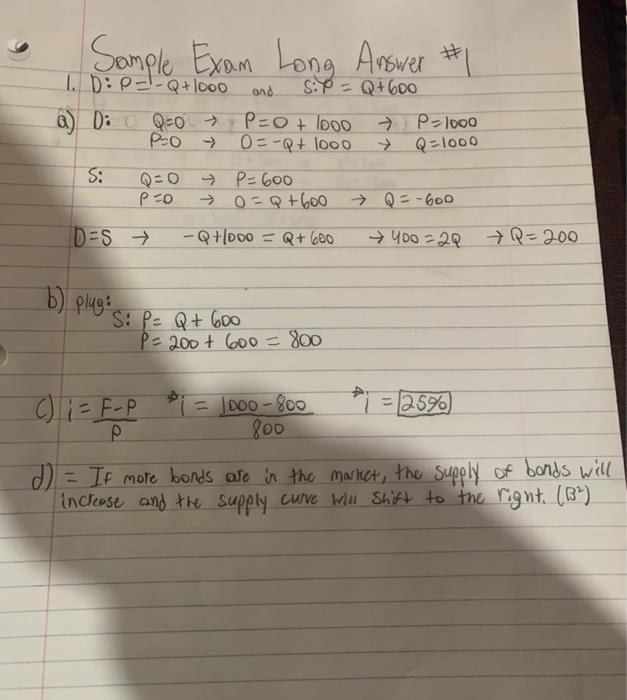 Sample Exam Long Answer #1
1. D: P = -Q+1000 and S: P = Q+600
a) D: Q=0 → P=0 + 1000 → P=1000
P=0 → 0=-Q+ 1000 → Q=1000
S: Q=0 → P=600
P=0 → 0=Q+600 → Q=-600
D=S → -Q+1000 = Q+600 → 400=2Q → Q=200
b) plug:
S: P= Q+600
P= 200+ 600 = 800
c) i = F-P/P *i = 1000-800/800 *i = 25%
d) = If more bonds are in the market, the supply of bonds will
increase and the supply curve will shift to the right. (B²)